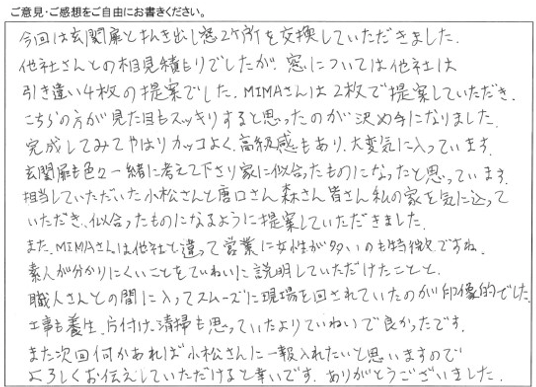 ご意見・ご感想をご自由にお書きください。
今回は玄関扉と掃き出し窓2ケ所を交換していただきました。
他社さんとの相見積もりでしたが、窓については他社は
引き違い4枚の提案でした。MIMAさんは2枚で提案していただき、
こちらの方が見た目もスッキリすると思ったのが決め手になりました。
完成してみてやはりカッコよく、高級感もあり、大変気に入っています。
玄関扉も色々一緒に考えて下さり家に似合ったものになったと思っています。
担当していただいた小松さんと唐口さん森さん皆さん私の家を気に込って
いただき、似合ったものになるように提案していただきました。
また、MIMAさんは他社と違って営業に女性が多いのも特徴ですね。
素人が分かりにくいことをていねいに説明していただけたことと、
職人さんとの間に入ってスムーズに現場を回されていたのが印像的でした。
工事も養生、片付け、清掃も思っていたよりていねいで良かったです。
また次回何かあれば小松さんに一報入れたいと思いますので
よろしくお伝えしていただけると幸いです。ありがとうございました。